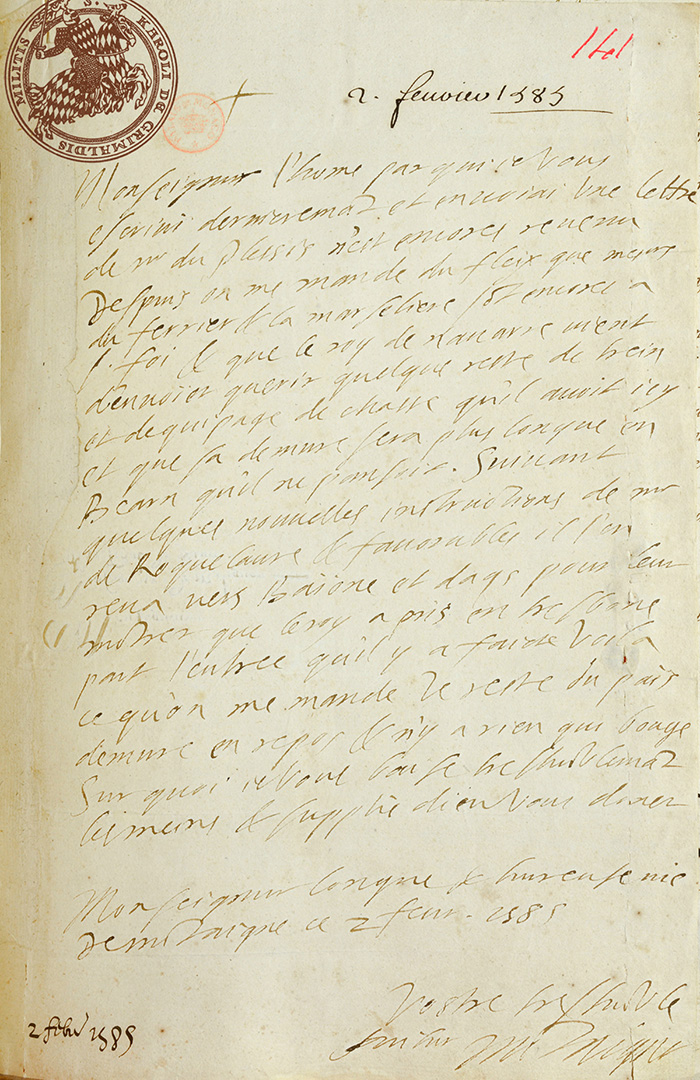 S. KAROLI DE GRIMALDIS MILITIS
141
2. feuvrier 1585
Monseigneur l'home par qui ie vous
escrivi dernieremāt et envoiai une lettre
de mr du Plessis n'est encores revenu
Despuis on me mande du fleix que messrs
du ferrier & la marseliere sōt encores a
S. foi & que le roy de navarre vient
d'envoier querir quelque reste de trein
et d'equipage de chasse qu'il avoit icy
et que sa demure sera plus longue en
Bearn qu'il ne pansoit. Suivant
quelques nouvelles instructions de mr
de Roquelaure & favorables il s'en
reva vers Baione et dags pour leur
mōtrer que le roy a pris en tresbone
part l'entree qu'il y a faicte Voila
ce qu'on me mande Le reste du païs
demure en repos & n'y a rien qui bouge
Sur quoi ie vous baise treshumblemāt
les meins & supplie dieu vous doner
Monseigneur longue & hureuse vie
De mōtaigne ce 2 feur. 1585
Vostre treshumble
servitur Montaigne
2 febr 1585